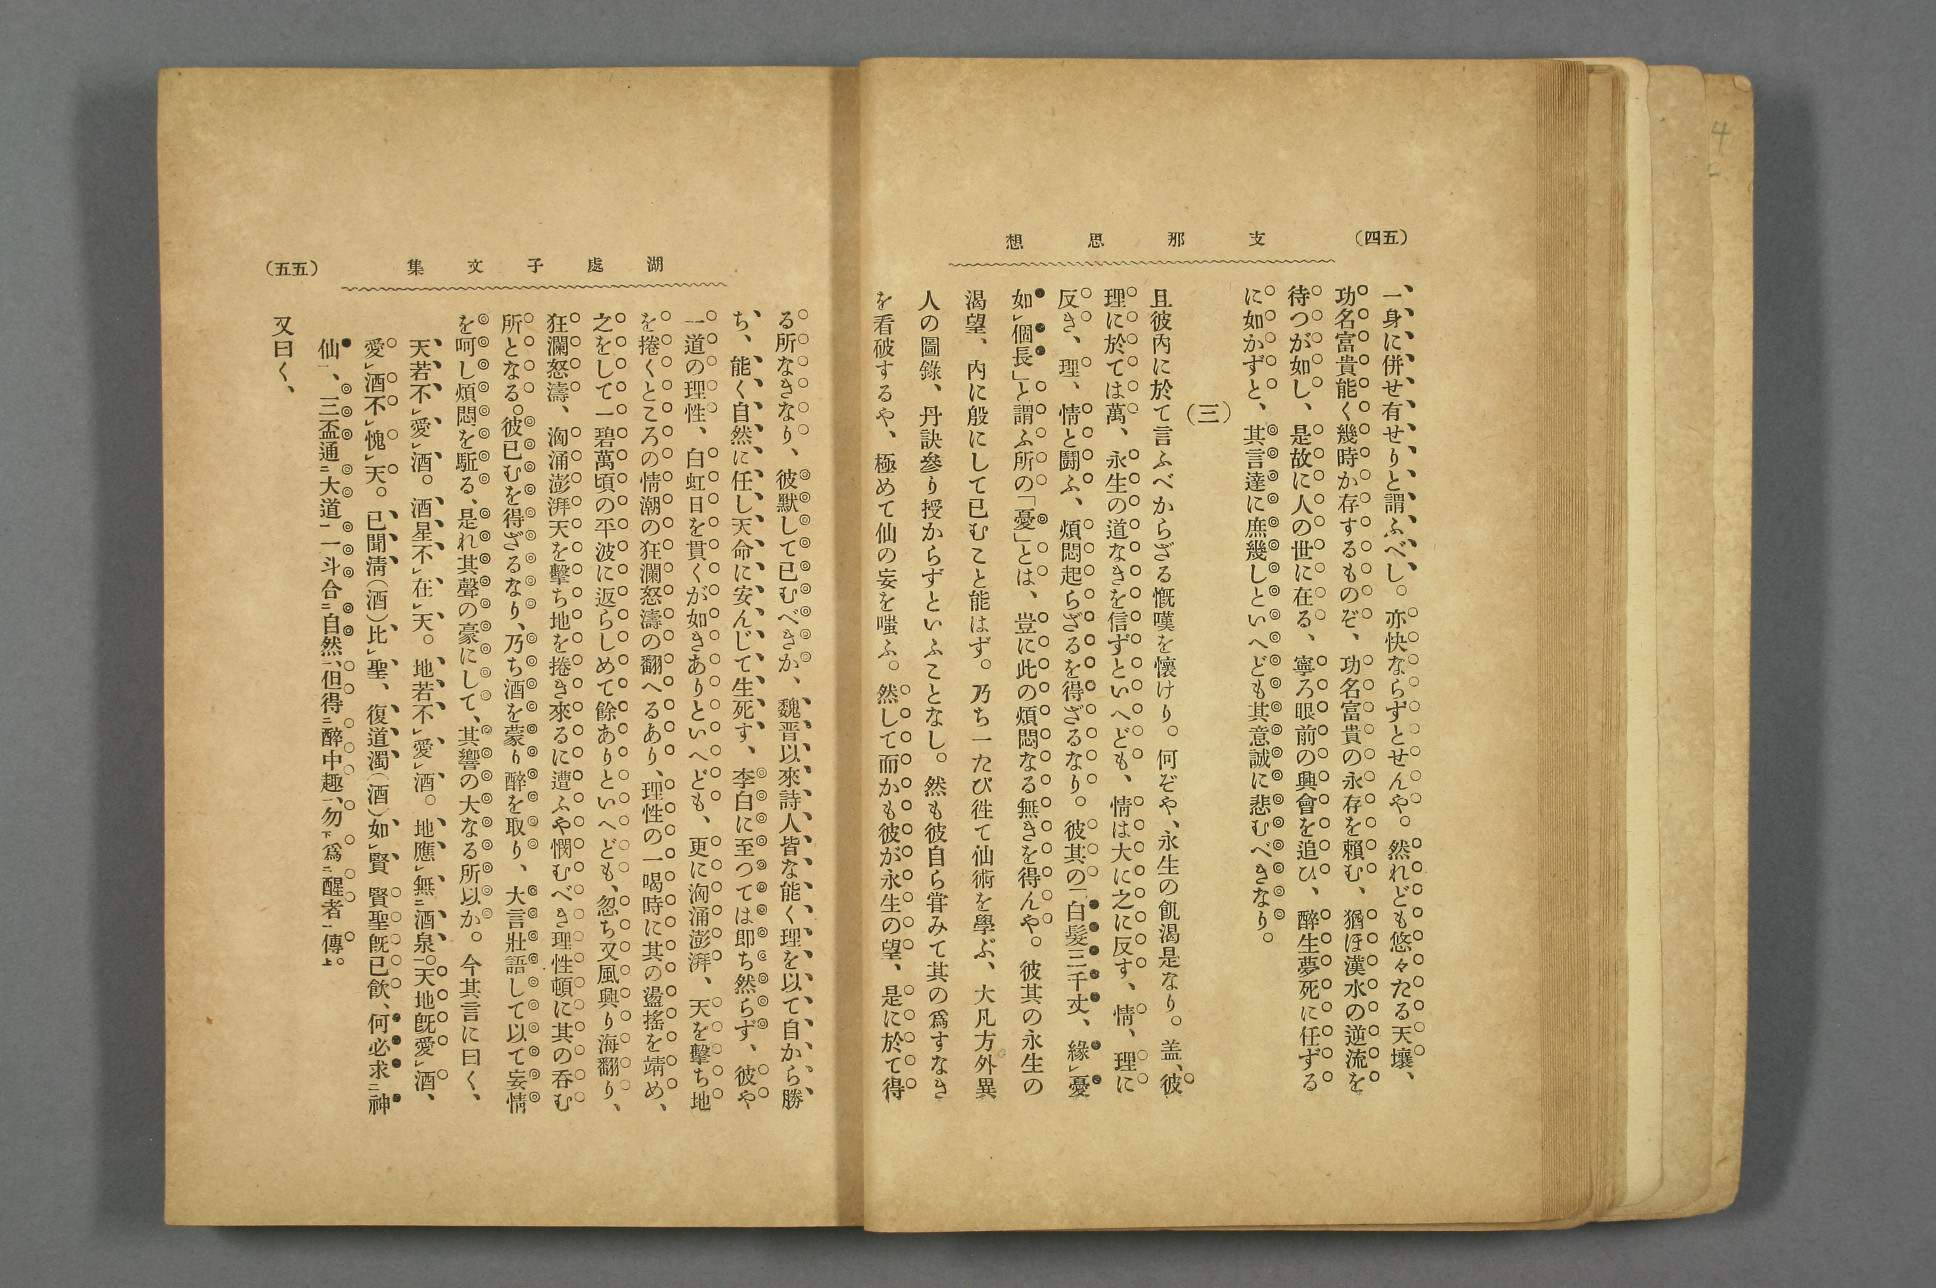 （五四）
支那思想
一身に併せ有せりと謂ふべし。亦快ならずとせんや。然れども悠々たる天壤、
功名富貴能く幾時か存するものぞ、功名富貴の永存を賴む、猶ほ漢水の逆流を
待つが如し、是故に人の世に在る、寧ろ眼前の興會を追ひ、醉生夢死に任ずる
に如かずと、其言達に庶幾しといへども其意誠に悲むべきなり。
（三）
且彼內に於て言ふべからざる慨嘆を懷けり。何ぞや、永生の飢渴是なり。盖、彼
理に於ては萬、永生の道なきを信ずといへども、情は大に之に反す、情、理に
反き、理、情と鬪ふ、煩悶起らざるを得ざるなり。彼其の「白髮三千丈、緣レ憂
如レ個長」と謂ふ所の「憂」とは、豈に此の煩悶なる無きを得んや。彼其の永生の
渴望、內に殷にして已むこと能はず。乃ち一たび徃て仙術を學ぶ、大凡方外異
人の圖錄、丹訣參り授からずといふことなし。然も彼自ら甞みて其の爲すなき
を看破するや、極めて仙の妄を嗤ふ。然して而かも彼が永生の望、是に於て得
湖處子文集
（五五）
る所なきなり、彼默して已むべきか、魏晋以來詩人皆な能く理を以て自から勝
ち、能く自然に任し天命に安んじて生死す、李白に至つては即ち然らず、彼や
一道の理性、白虹日を貫くが如きありといへども、更に洶涌澎湃、天を擊ち地
を捲くところの情潮の狂瀾怒濤の翻へるあり、理性の一喝時に其の盪搖を靖め、
之をして一碧萬頃の平波に返らしめて餘ありといへども、忽ち又風興り海翻り、
狂瀾怒濤、洶涌澎湃天を擊ち地を捲き來るに遭ふや憫むべき理性頓に其の呑む
所となる。彼已むを得ざるなり、乃ち酒を蒙り醉を取り、大言壯語して以て妄情
を呵し煩悶を駈る、是れ其聲の豪にして、其響の大なる所以か。今其言に曰く、
天若不レ愛レ酒。酒星不レ在レ天。地若不レ愛レ酒。地應レ無二酒泉一。天地旣愛レ酒、
愛レ酒不レ愧レ天。已聞淸（酒）比レ聖、復道濁（酒）如レ賢 賢聖旣已飮、何必求二神
仙一、三盃通二大道一一斗合二自然一、但得二醉中趣一、勿下爲二醒者一傳上。
又曰く、